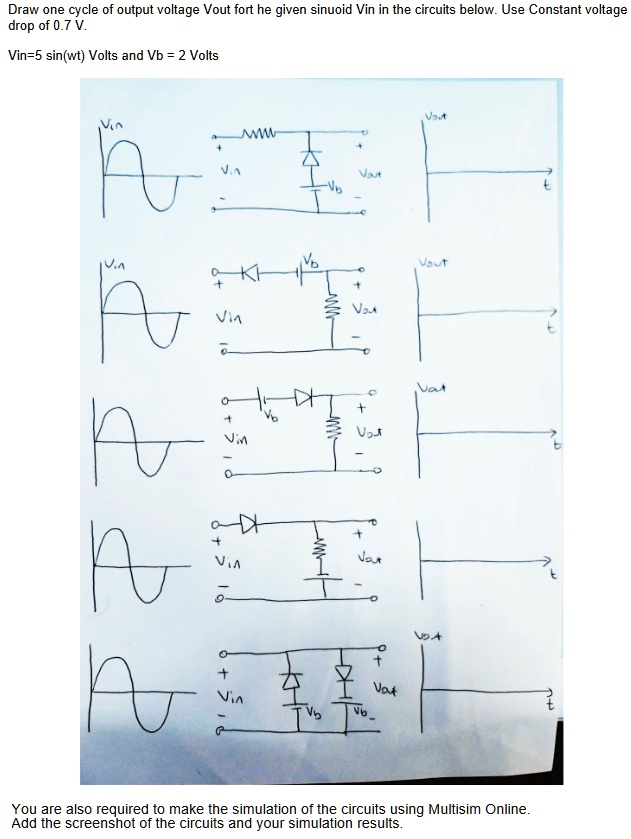 Draw one cycle of output voltage Vout fort he given sinuoid Vin in the circuits below. Use Constant voltage
drop of 0.7 V.
Vin=5 sin(wt) Volts and Vb = 2 Volts
Vin
+
Vin
-
Vb
+
Vout
-
Vout
t
Vin
+
Vin
-
Vb
+
Vout
-
Vout
t
+
Vin
-
Vb
+
Vout
-
Vout
t
+
Vin
-
+
Vout
-
t
+
Vin
-
Vb
Vb
+
Vout
-
Vout
t
You are also required to make the simulation of the circuits using Multisim Online.
Add the screenshot of the circuits and your simulation results.